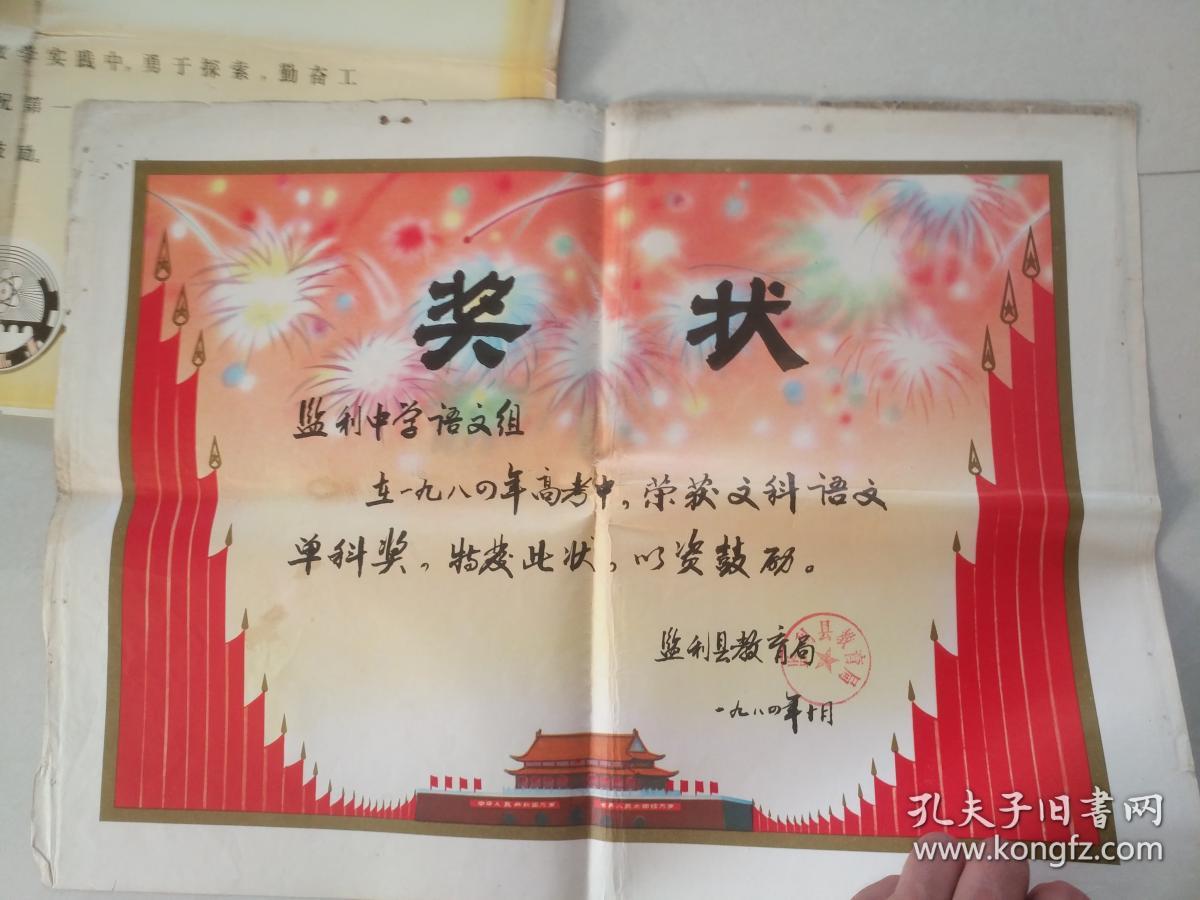 学实践中，勇于探索，勤奋工
第一
励。
奖 状
监利中学语文组
在一九八四年高考中，荣获文科语文
单科奖，特发此状，以资鼓励。
监利县教育局
监利县教育局
一九八四年十月
中华人民共和国万岁 世界人民大团结万岁
孔夫子旧书网
www.kongfz.com